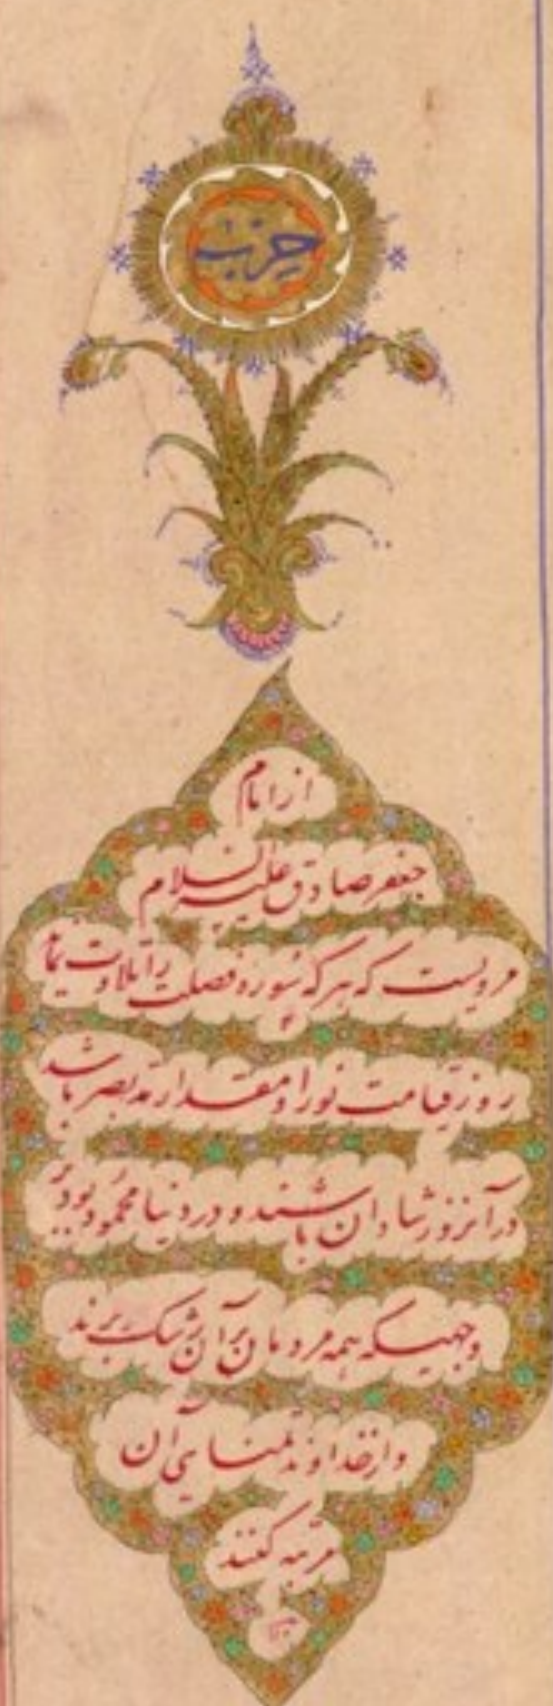 حزب
از امام
جعفر صادق علیه السلام
مرویست که هرکه سوره فصلت را تلاوت نماید
روز قیامت نور او مقدار مد بصر باشد
در آنروز شادان باشند و در دنیا محمود بود بر
وجهیکه همه مردمان بر آن رشک برند
و از خداوند تمنای آن
مرتبه کنند